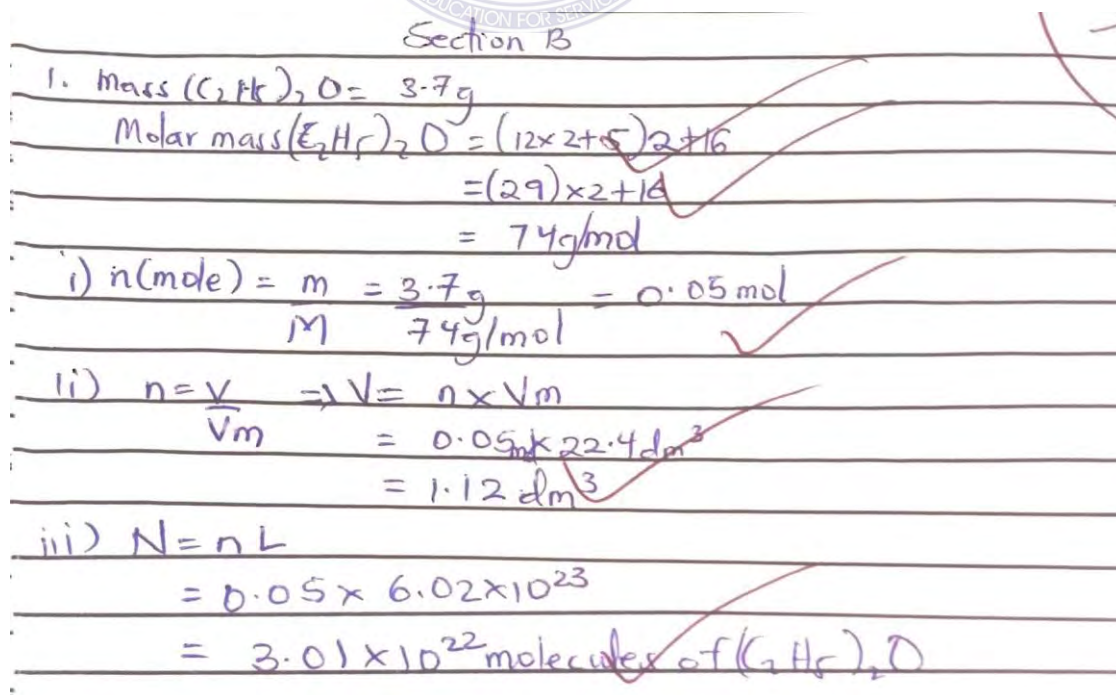 CATION FOR SERV
Section B
1. Mass (C2H5)2 O = 3.7g
Molar mass (C2H5)2 O = (12×2+5)2+16
=(29)×2+16
= 74g/mol
i) n(mole) = m/M = 3.7g/74g/mol = 0.05 mol
ii) n = V/Vm => V = n × Vm
= 0.05mol × 22.4 dm³
= 1.12 dm³
iii) N = n L
= 0.05 × 6.02×10²³
= 3.01 ×10²² molecules of (C2H5)2 O